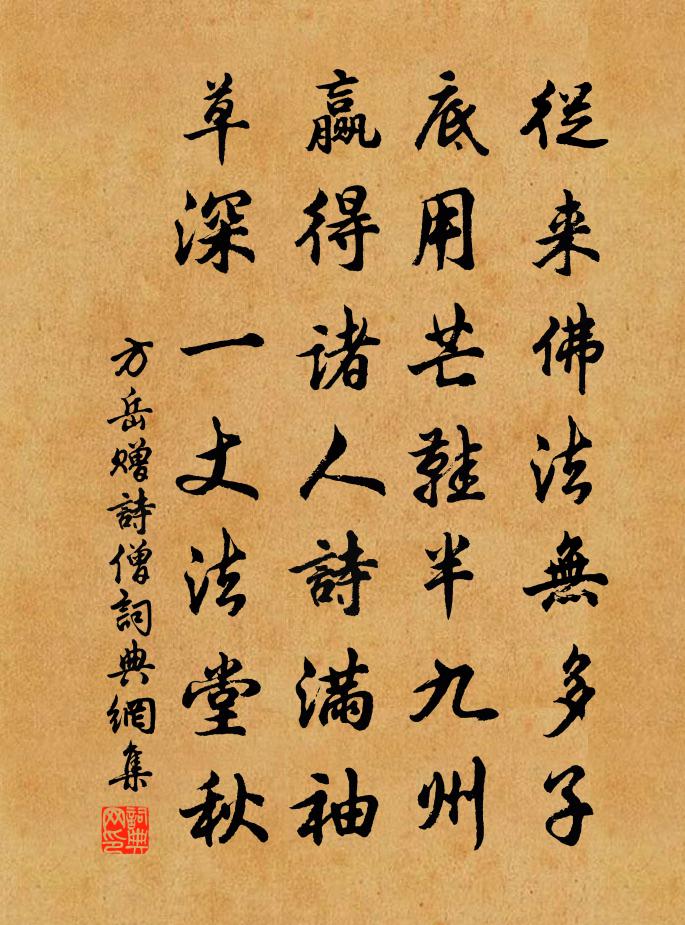 從来佛法無多子
底用芒鞋半九州
贏得諸人詩滿袖
草深一丈法堂秋
方岳贈詩僧詞典網集
詞典网印